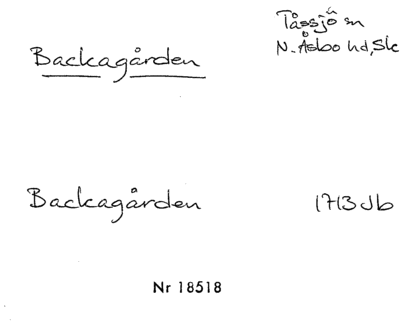 Tåssjö sn
Backagården N. Åsbo hd, Sk
Backagården 1713 Jb
Nr 18518